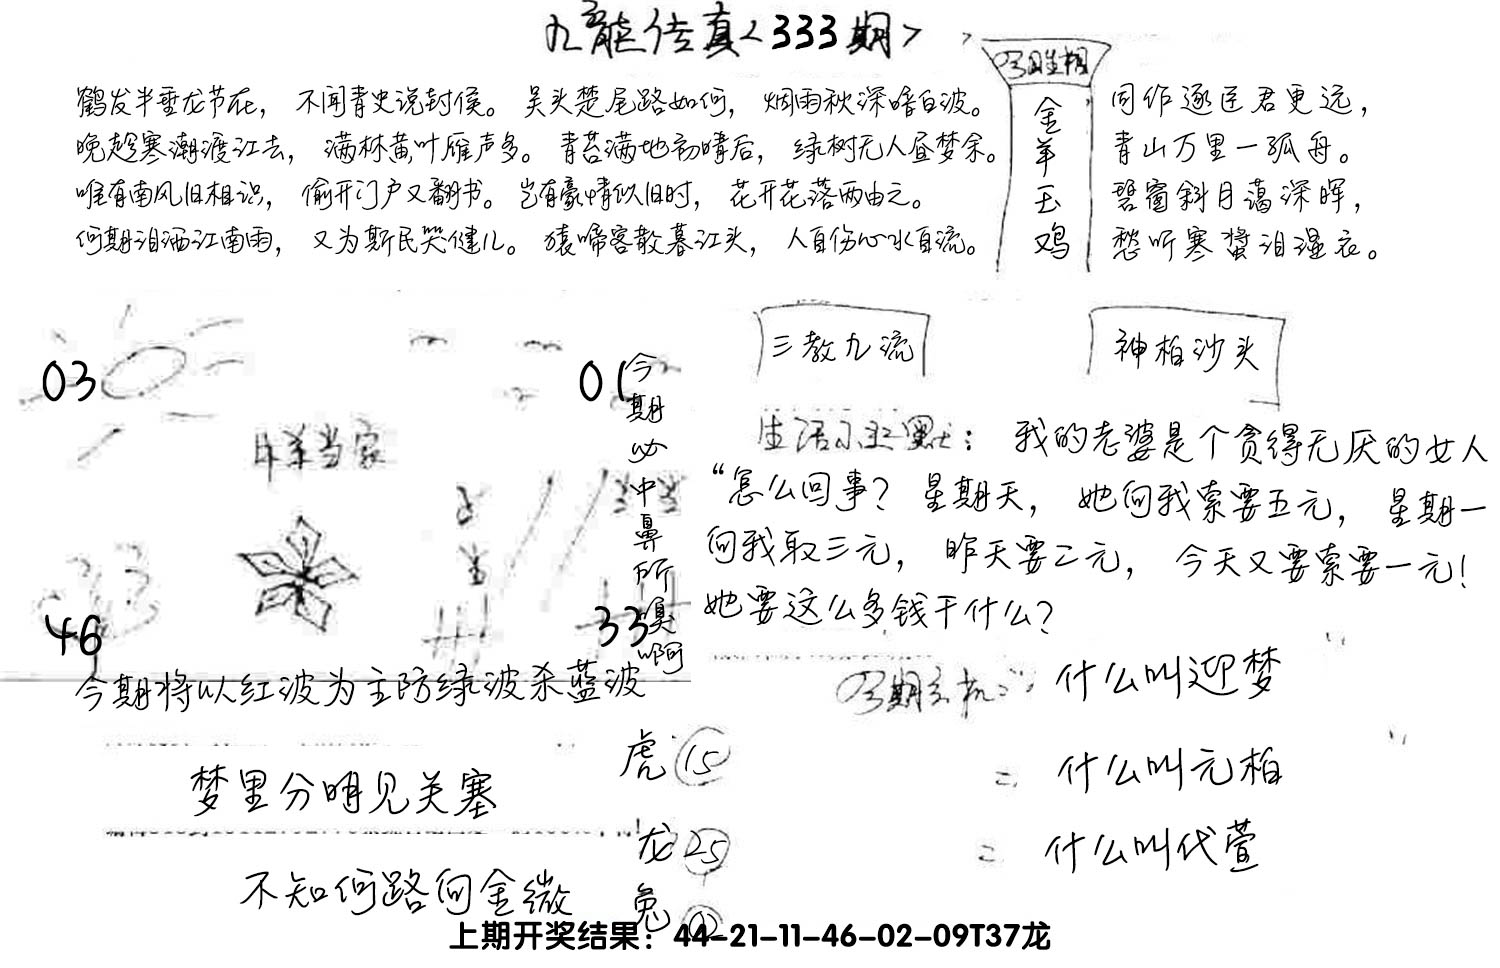 九龙传真<333期>
今日生相
金羊玉鸡
鹤发半垂龙节在，不闻青史说封侯。吴头楚尾路如何，烟雨秋深暗白波。
晚趁寒潮渡江去，满林黄叶雁声多。青苔满地初晴后，绿树无人昼梦余。
唯有南风旧相识，偷开门户又翻书。岂有豪情似旧时，花开花落两由之。
何期泪洒江南雨，又为斯民哭健儿。猿啼客散暮江头，人自伤心水自流。
同作逐臣君更远，
青山万里一孤舟。
碧窗斜月蔼深晖，
愁听寒螿泪湿衣。
03
01
今期必中鼻所嗅啊
当家
46
33
今期将以红波为主防绿波杀蓝波
三教九流
神柏沙头
生活小幽默：我的老婆是个贪得无厌的女人
“怎么回事？星期天，她向我索要五元，星期一
向我取三元，昨天要二元，今天又要索要一元！
她要这么多钱干什么？
今期玄机：什么叫迎梦
什么叫元柏
什么叫代萱
梦里分明见关塞
不知何路向金微
虎 15
龙 25
兔 02
上期开奖结果：44-21-11-46-02-09T37龙